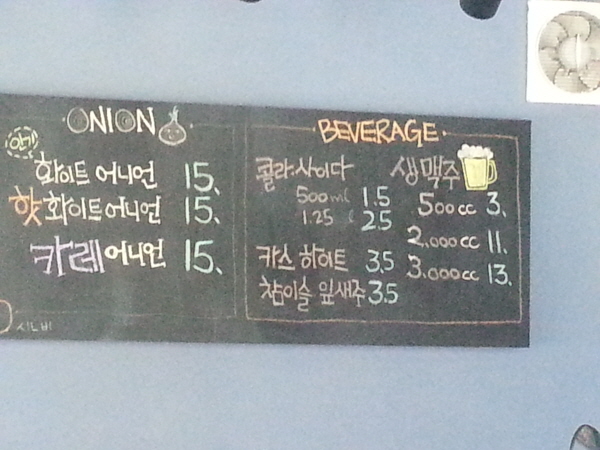 ONION
인기
화이트 어니언 15.
핫 화이트어니언 15.
카레 어니언 15.
시노비
BEVERAGE
콜라·사이다
500ml 1.5
1.25 l 2.5
카스 하이트 3.5
참이슬 잎새주 3.5
생맥주
500cc 3.
2.000cc 11.
3.000cc 13.